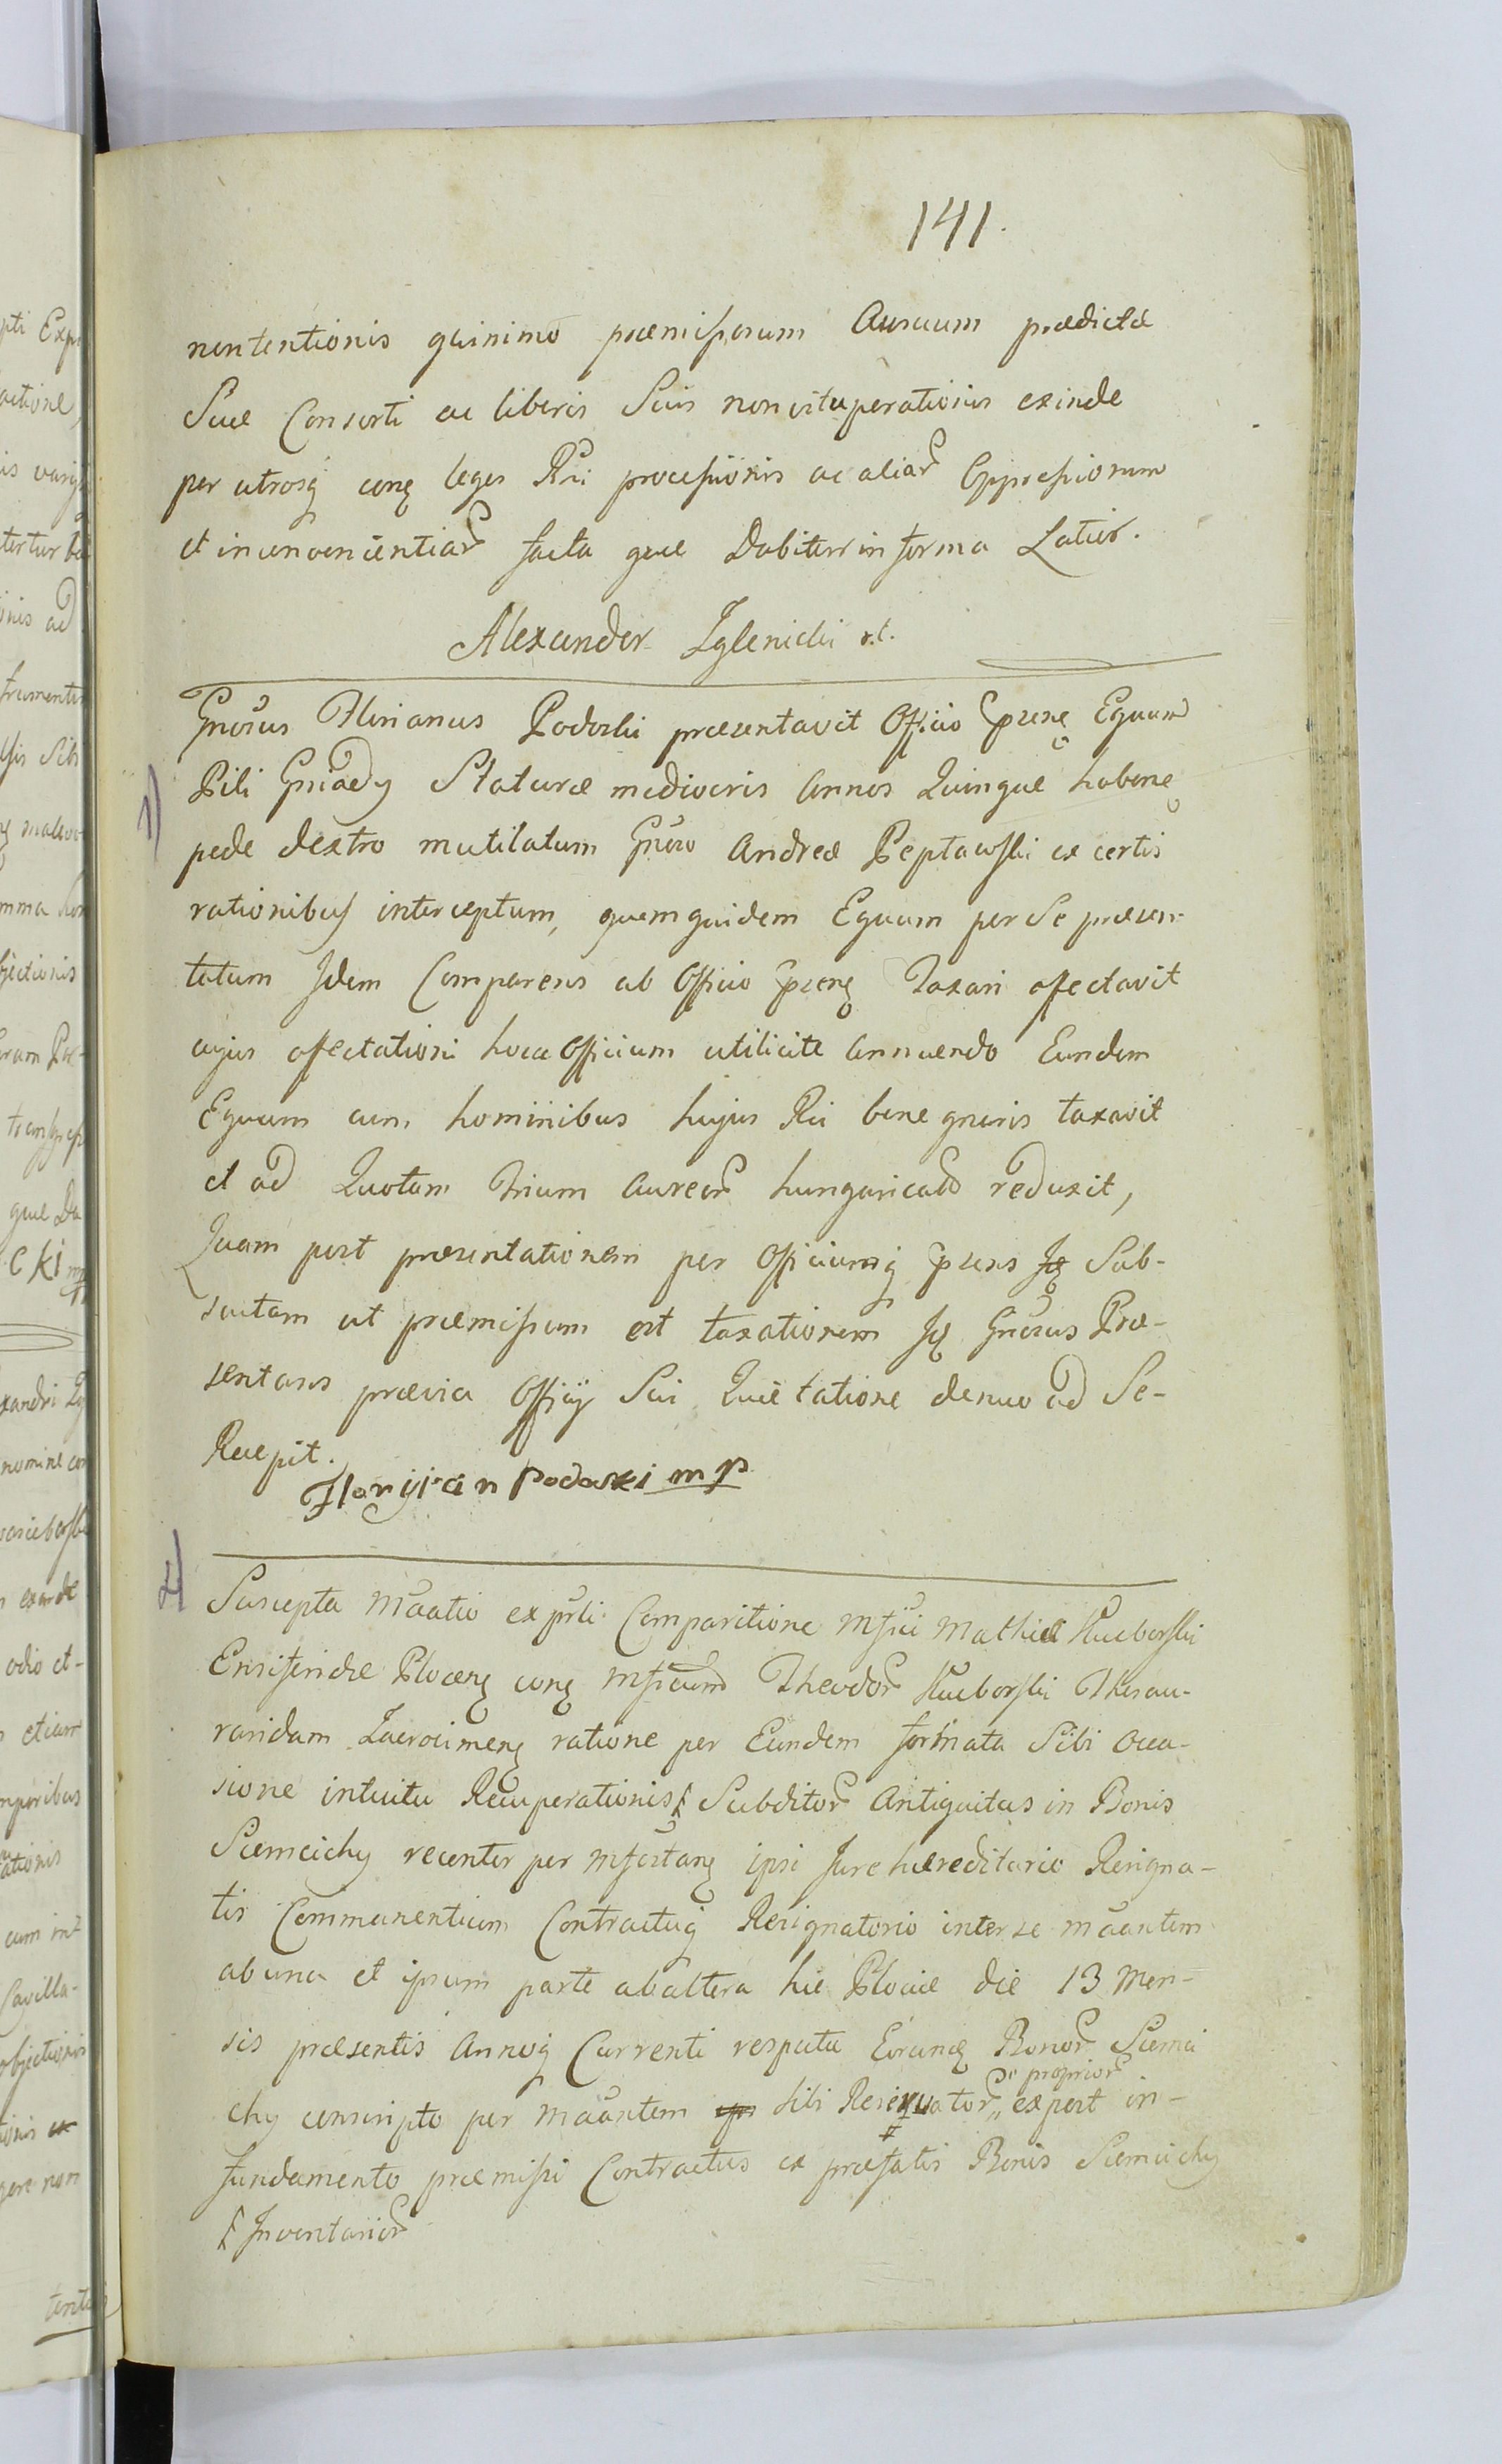 141.
nontentionis quinimo praemissorum Auraum praedictae
Suae Consorti ac liberis Suis non vituperationis exinde
per utrosq conq leges Rni processionis ac aliar Oppressionum
et inconvenientiar facta que Dabitur in forma Latior.
Alexander Zglenicki
Gnosus Florianus Podoski praesentavit Officio ppsenq Equum
1)
Pili Gniady Staturae mediocris Annos Quinque habenq
pede dextro mutilatum Gnoso Andreae Peptowski ex certis
rationibus interceptum, quem quidem Equum per Se praesen-
tatum Idem Comparens ab Officio ppsenq Taxari affectavit
cujus affectationi hocce Officium utilicite Annuendo Eundem
Equum cum hominibus hujus Rei bene gnaris taxavit
et ad Quotam Trium Aureor hungaricalr reduxit,
Quam post praesentationem per Officiumq ppsens Sub-
sectam ut praemissum est taxationem Idq Gnosus Prae-
sentans praevia Officij Sui Quietatione denuo ad Se-
Recepit.
Floryjan Podoski mp
2)
Suscepta Maatio ex prsti Comparitione Mfici Mathiae Kuczborski
Ensiferidae Plocenq conq Mficum Theodor Kuczborski Thesau-
raridam Zacrocimenq ratione per Eundem formata Sibi Occa-
sione intuitu Recuperationis Subditor Antiquitus in Bonis
Siemcichy recenter per Mfcstanq ipsi Jure haereditario Resigna-
tis Commanentium Contractuq Resignatorio inter se maantem
ab una et ipsum parte ab altera hic Plociae die 13 Men-
sis praesentis Annoq Currenti respectu Eorunq Bonor Siemci
" proprior
chy conscripto per Maantem sibi Resignator " expost in-
fundamento praemissi Contractus ex praefatis Bonis Siemcichy
Inventarior